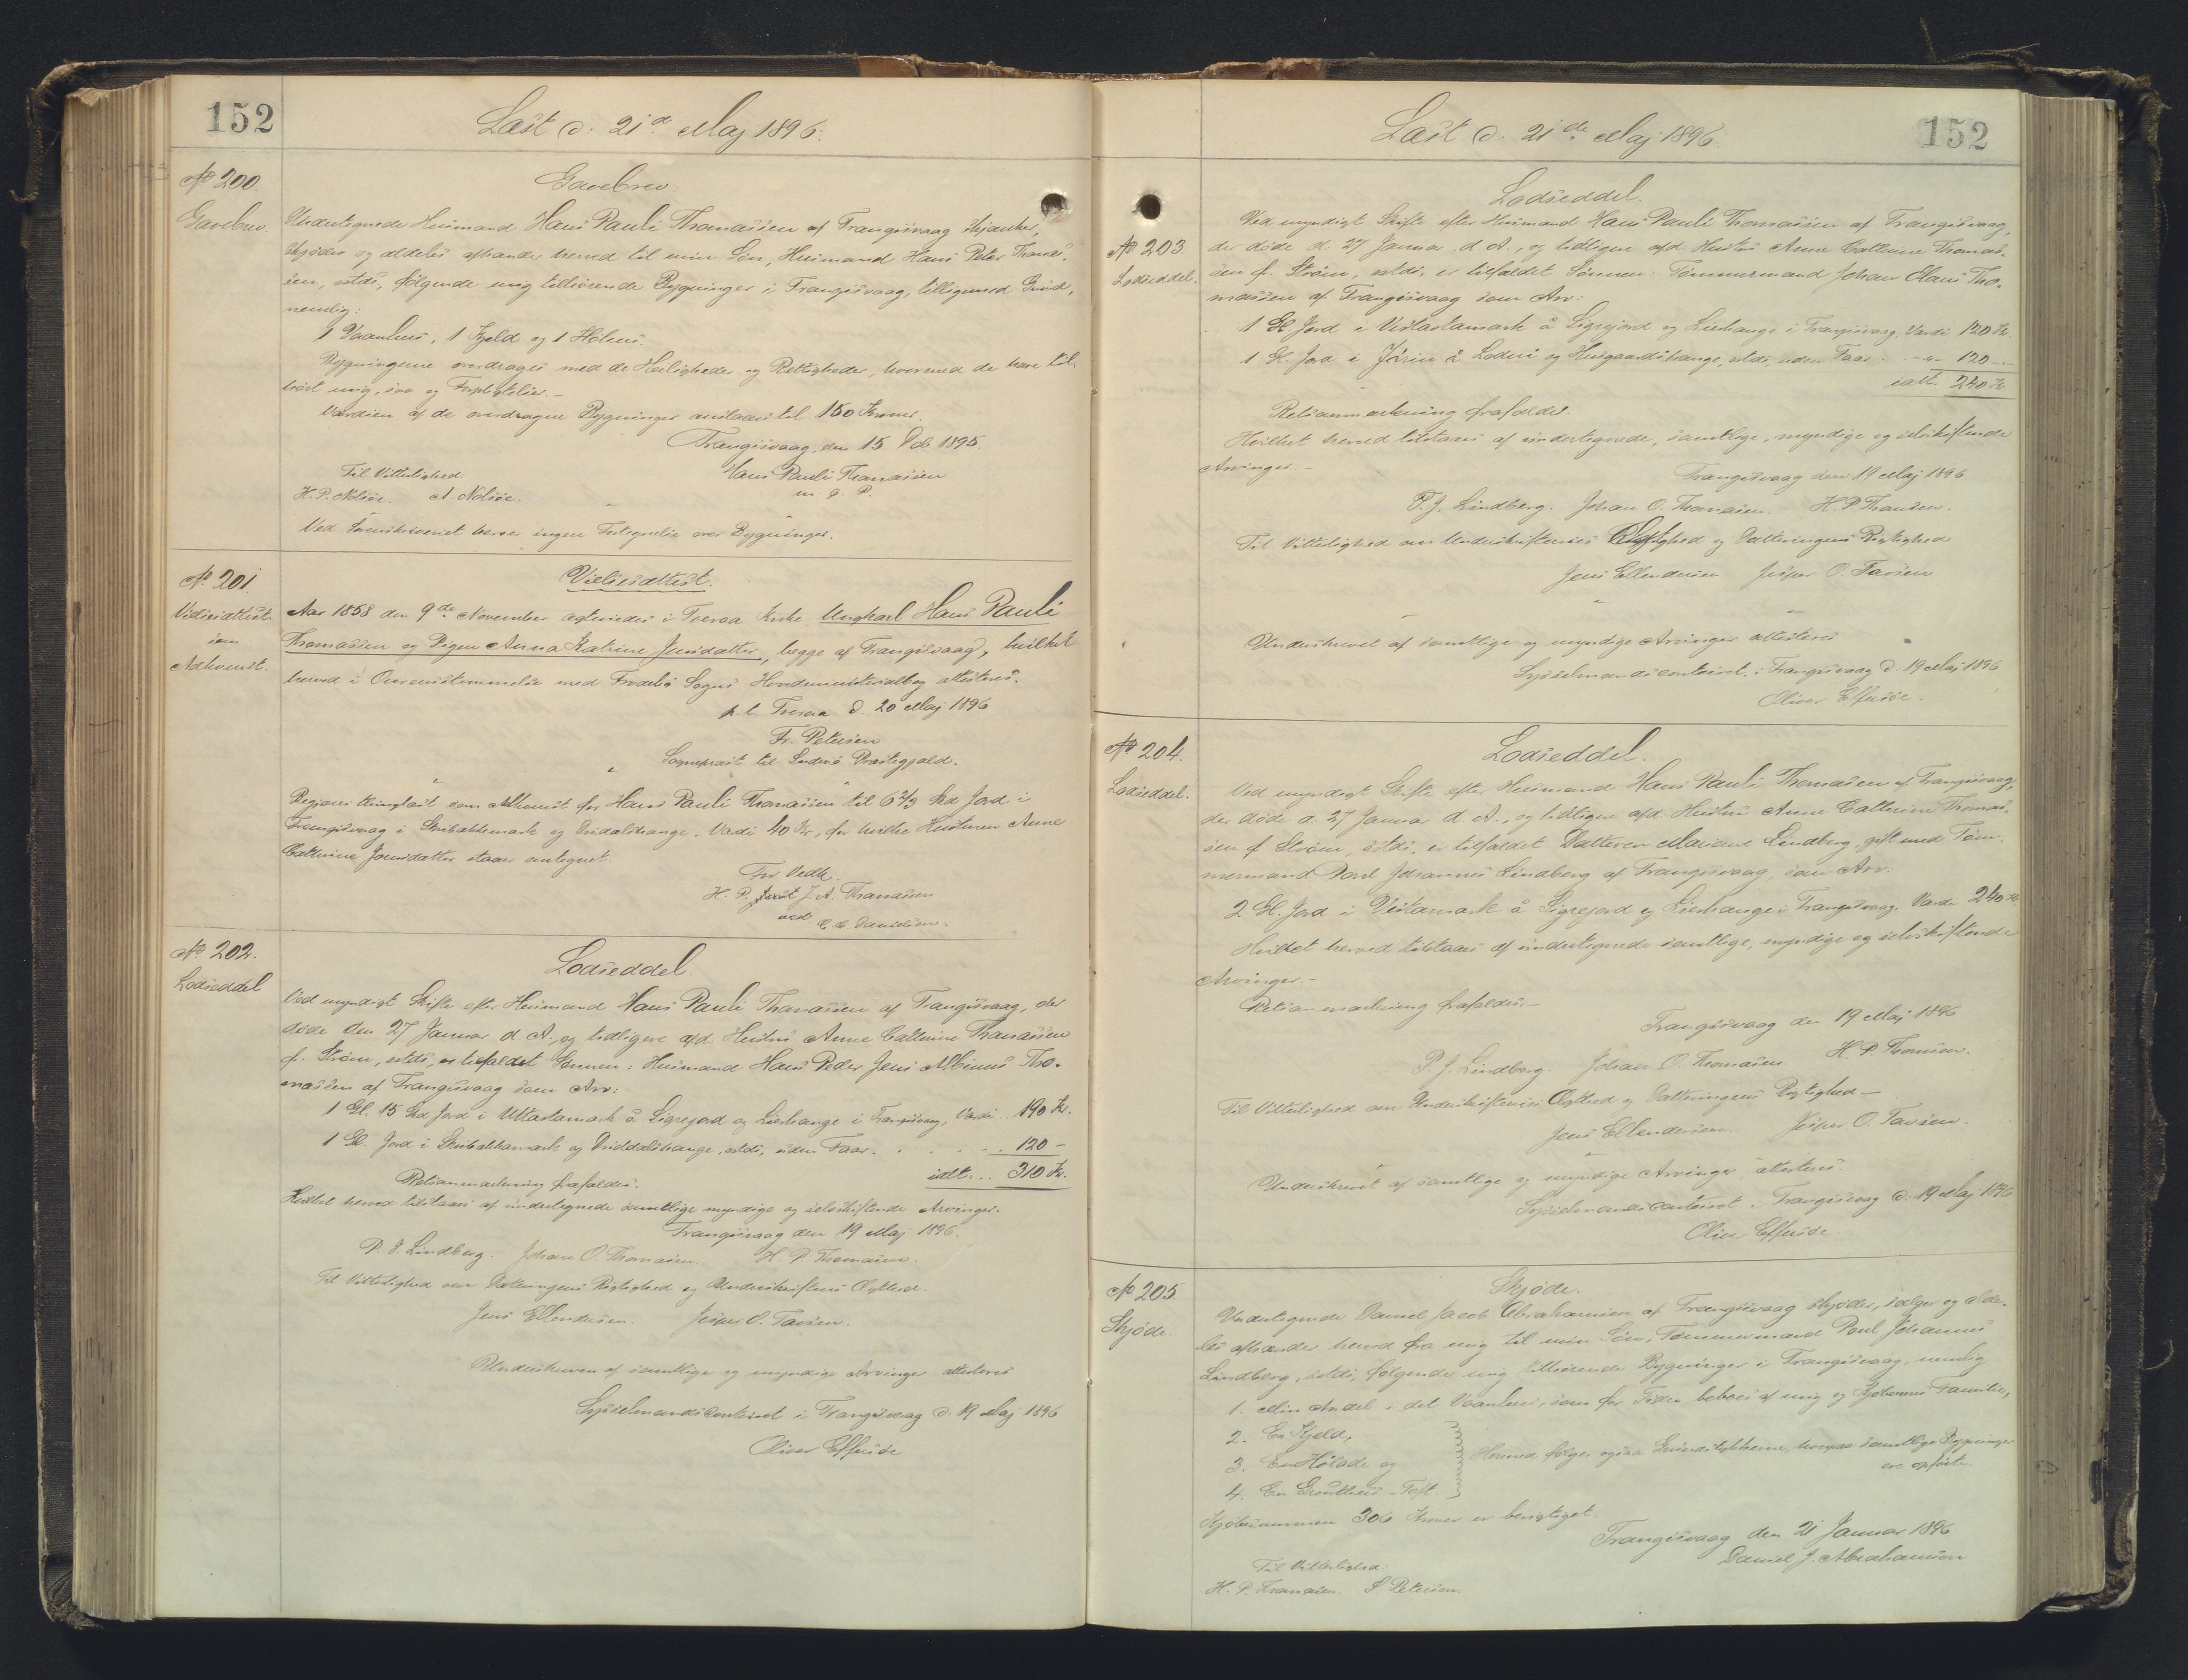 152
Læst d. 21de Maj 1896.
No 200.
Gavebrev.
Gavebrev.
Undertegnede Huusmand Hans Pauli Thomassen af Trangisvaag skjænker,
skjøder og aldeles afhænder herved til min Søn, Huusmand Hans Peter Thomas-
sen, sstds, følgende mig tilhørende Bygninger i Trangisvaag, tilligemed Grund,
nemlig:
1 Vaanhus, 1 Kjeld og 1 Høhus.
Bygningerne overdrages med de Herligheder og Rettigheder, hvormed de have til-
hørt mig, saa og Forpligtelser. –
Værdien af de overdragne Bygninger ansættes til 150 Kroner.
Trangisvaag, den 15 Feb 1895.
Til Vitterlighed: Hans Pauli Thomassen
H. P. Nolsøe. A. Nolsøe. m. f. P.
Ved Sorenskriveriet haves ingen Fortegnelse over Bygninger.
No 201.
Vielsesattest
som
Adkomst.
Vielsesattest.
Aar 1858 den 9de November ægteviedes i Tveraa Kirke Ungkarl Hans Pauli
Thomassen og Pigen Anna Katrine Jensdatter, begge af Trangisvaag, hvilket
herved i Overensstemmelse med Frodebø Sogns Hovedministerialbog attesteres.
p. t. Tveraa d. 20 Maj 1896
Fr. Petersen
Sognepræst til Suderø Præstegjæld.
Begjæres thinglæst som Adkomst for Hans Pauli Thomassen til 6 2/3 Skd Jord i
Trangisvaag i og . Værdi 40 Kr, for hvilke Hustruen Anne
Cathrine Jensdatter staaer antegnet.
For Vedk.
H. P. J. A. Thomassen
ved
Danielsen.
No 202.
Lodseddel
Lodseddel.
Ved myndigt Skifte efter Huusmand Hans Pauli Thomassen af Trangisvaag, der
døde den 27 Januar d. A., og tidligere afd. Hustru Anne Cathrine Thomassen
f. Strøm, sstds, er tilfaldet Sønnen: Huusmand Hans Peder Jens Albinus Tho-
massen af Trangisvaag som Arv:
1 Gl. 15 Skd Jord i å Sigrejord og Lierhauge i Trangisvaag, Værdi .. 190 Kr.
1 Gl. Jord i og , sstds, uden Faar. . . . . 120 –
Retsanmærkning frafaldes. ialt ... 310 Kr.
Hvilket herved tilstaaes af undertegnede samtlige myndige og selvskiftende Arvinger.
Trangisvaag den 19 Maj 1896.
P. J. Lindberg. Johan O. Thomassen. H. P. Thomassen.
Til Vitterlighed om Datteringens Rigtighed og Underskriftens Ægthed.
Jens Ellendersen. Jesper O. Tavsen.
Underskreven af samtlige og myndige Arvinger attesteres
Sysselmandscontoiret i Trangisvaag d. 19 Maj 1896
Oliver Effersøe
152
Læst d. 21de Maj 1896.
No 203
Lodseddel.
Lodseddel.
Ved myndigt Skifte efter Huusmand Hans Pauli Thomassen af Trangisvaag,
der døde d. 27 Januar d. A., og tidligere afd. Hustru Anne Cathrine Thomas-
sen f. Strøm, sstds, er tilfaldet Sønnen: Tømmermand Johan Olaus Tho-
massen af Trangisvaag som Arv:
1 Gl. Jord i å Sigrejord og Lierhauge i Trangisvaag, Værdi 120 Kr.
1 Gl. Jord i å og , sstds, uden Faar. - „ - 120 –
ialt. 240 Kr
Retsanmærkning frafaldes.
Hvilket herved tilstaaes af undertegnede, samtlige, myndige og selvskiftende
Arvinger. –
Trangisvaag den 19 Maj 1896
P. J. Lindberg. Johan O. Thomassen. H. P. Thomsen.
Til Vitterlighed om Underskrifternes Ægthed og Datteringens Rigtighed
Jens Ellendersen. Jesper O. Tavsen
Underskrevet af samtlige og myndige Arvinger attesteres
Sysselmandscontoiret, i Trangisvaag d. 19 Maj 1896
Oliver Effersøe.
No 204.
Lodseddel.
Lodseddel.
Ved myndigt Skifte efter Huusmand Hans Pauli Thomassen af Trangisvaag,
der døde d. 27 Januar d. A., og tidligere afd. Hustru Anne Cathrine Thomas-
sen f. Strøm, sstds, er tilfaldet Datteren Mariane Lindberg, gift med Tøm-
mermand Poul Johannes Lindberg af Trangisvaag, som Arv:
2 Gl. Jord i å Sigrejord og Lierhauge i Trangisvaag. Værdi 240 Kr
Hvilket herved tilstaaes af undertegnede samtlige, myndige og selvskiftende
Arvinger. –
Retsanmærkning frafaldes. –
Trangisvaag den 19 Maj 1896
P. J. Lindberg. Johan O. Thomassen H. P. Thomsen.
Til Vitterlighed om Underskrifternes Ægthed og Datteringens Rigtighed –
Jens Ellendersen. Jesper O. Tavsen.
Underskrevet af samtlige og myndige Arvinger, attesteres.
Sysselmandscontoiret i Trangisvaag d. 19 Maj 1896
Oliver Effersøe
No 205
Skjøde.
Skjøde.
Undertegnede Daniel Jacob Abrahamsen af Trangisvaag skjøder, sælger og alde-
les afhænder herved fra mig til min Søn, Tømmermand Poul Johannes
Lindberg, sstds, følgende mig tilhørende Bygninger i Trangisvaag, nemlig
1. Min Andel i det Vaanhus, som for Tiden beboes af mig og Kjøberens Familie,
2. En Kjeld,
3. En Hølade og
4. En - Toft.
Hermed følger ogsaa Grundstykkerne, hvorpaa samtlige Bygninger
ere opførte.
Kjøbesummen 306 Kroner er berigtiget.
Trangisvaag den 21 Januar 1896
Daniel J. Abrahamsen
Til Vitterlighed:
H. P. Thomassen. S Petersen.